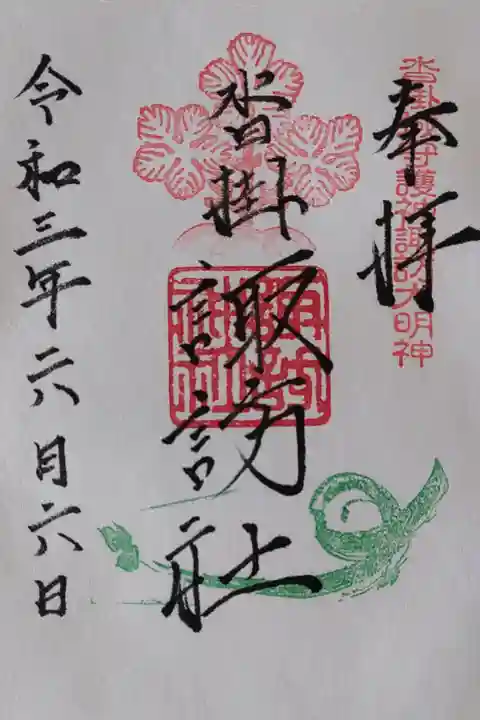 奉拝
沓掛 守護神諏訪大明神
沓掛諏訪社
令和三年六月六日